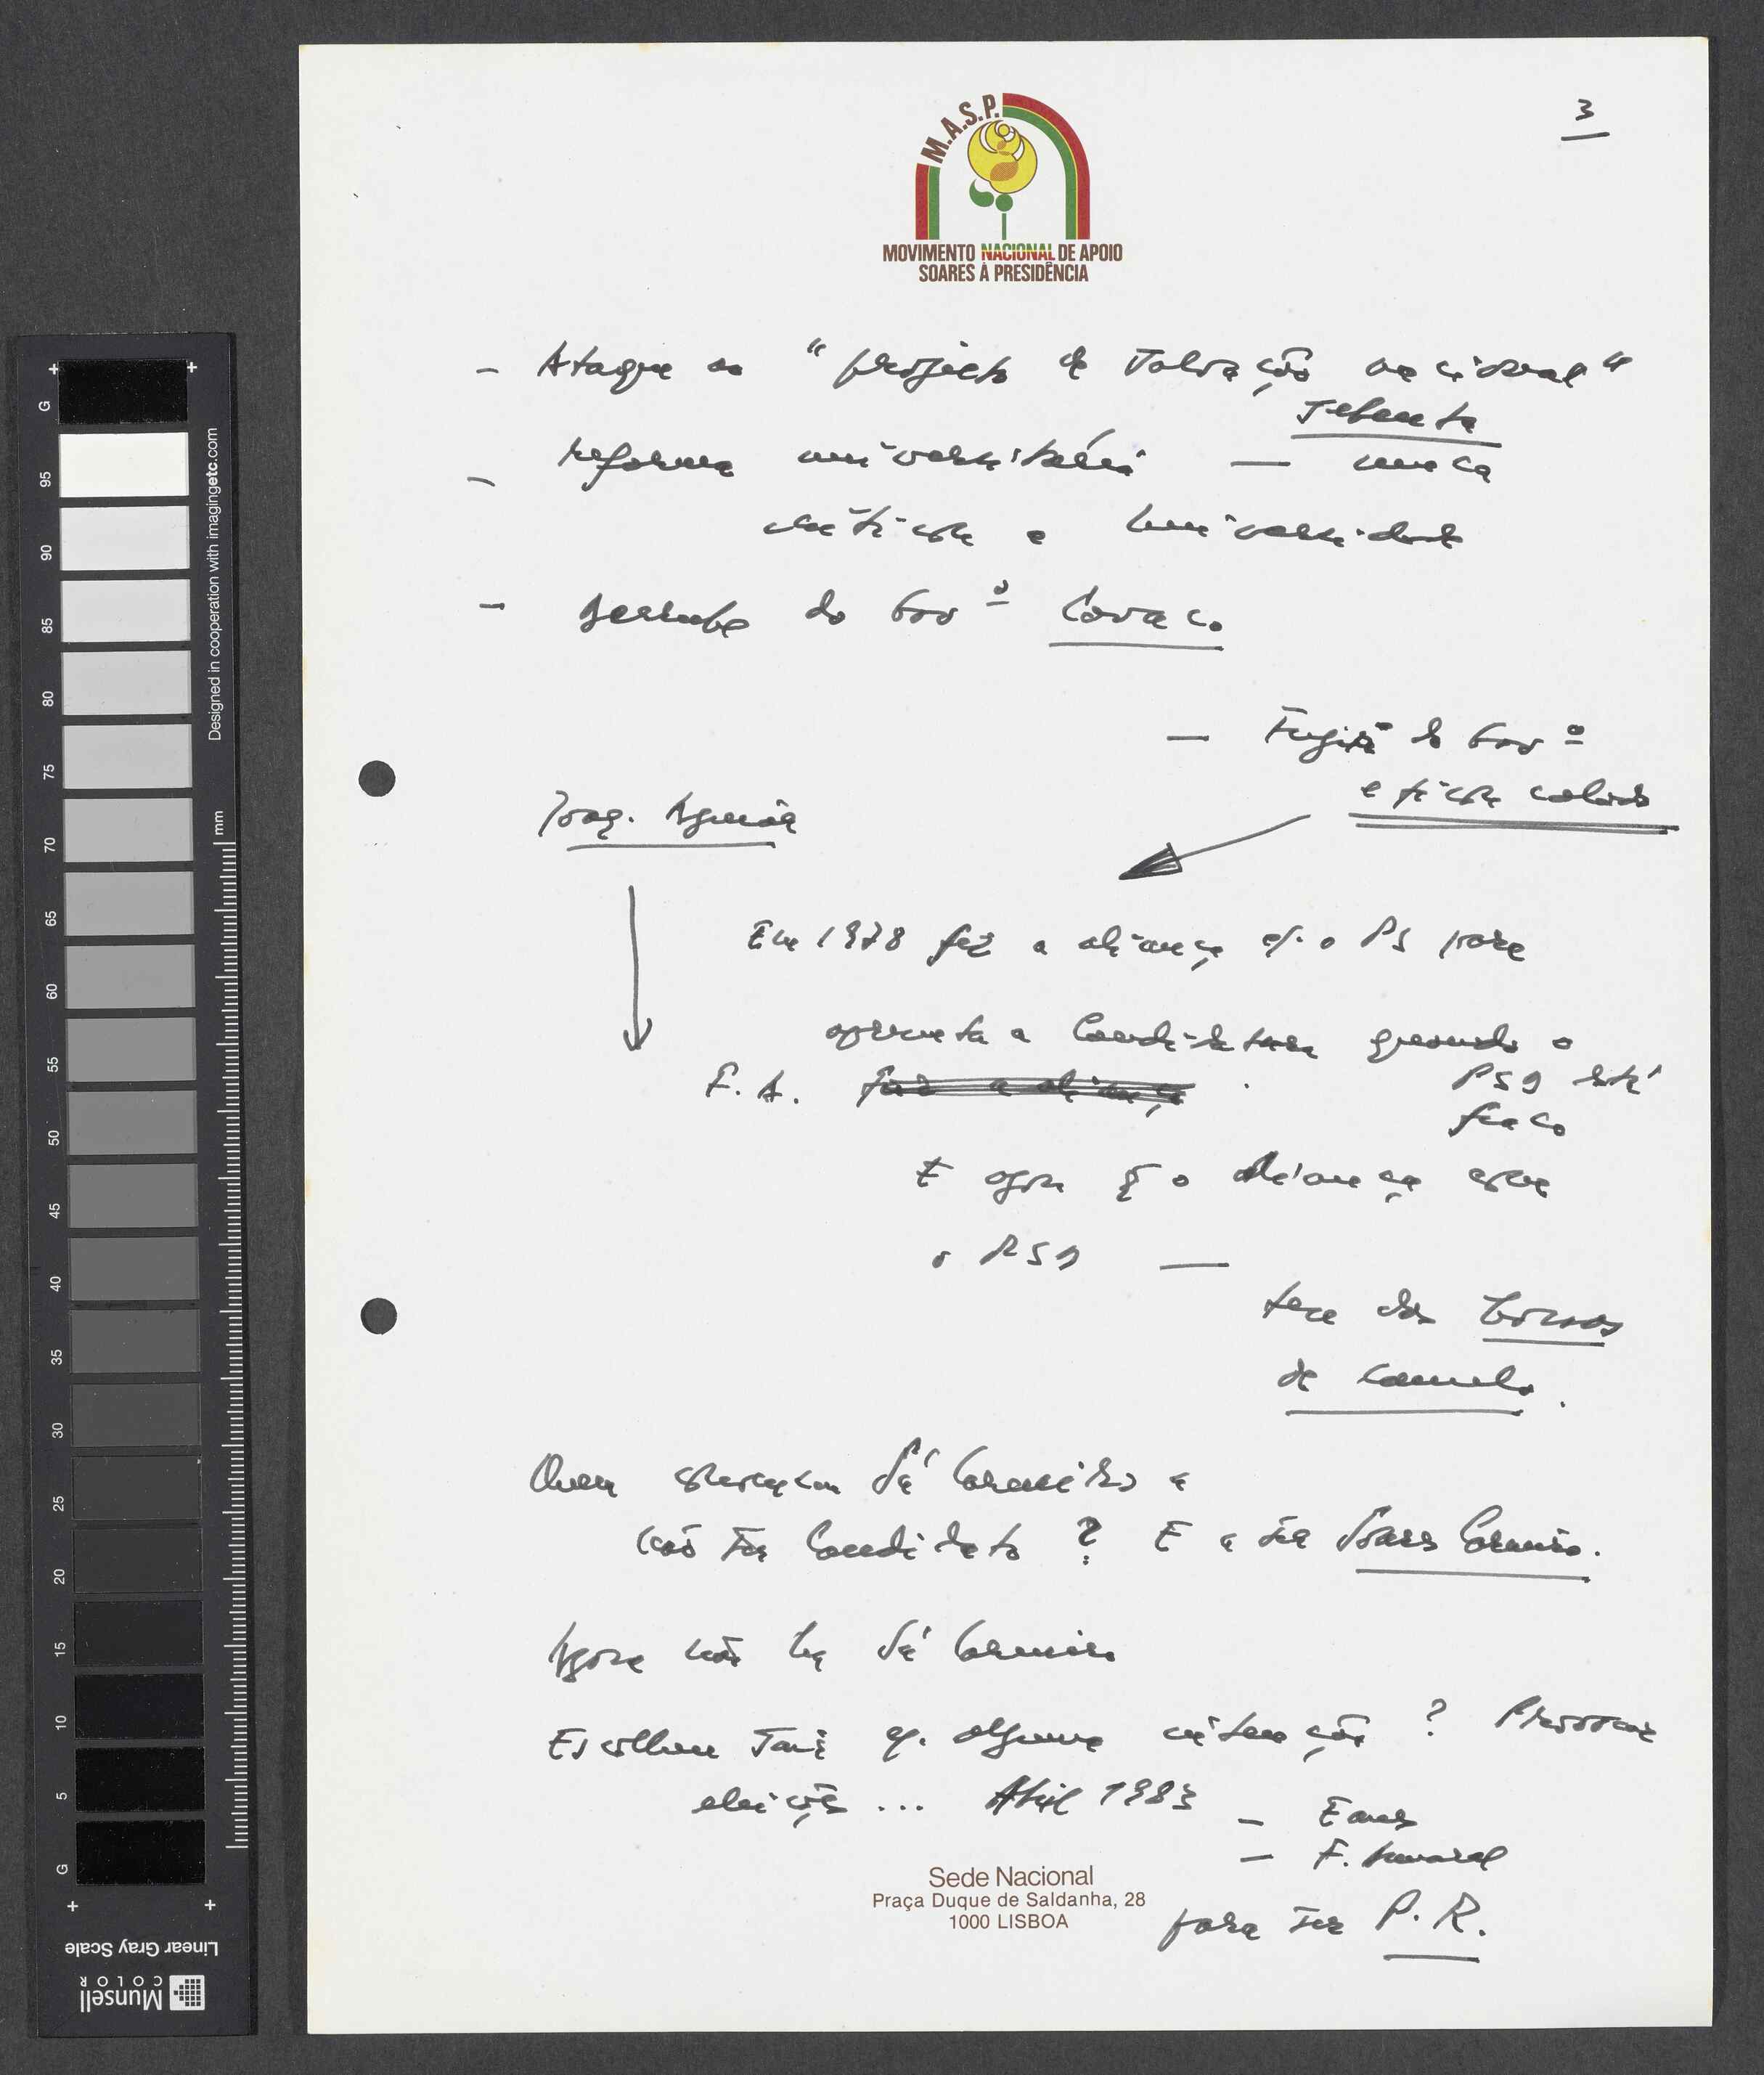 3
M.A.S.P.
MOVIMENTO NACIONAL DE APOIO
SOARES À PRESIDÊNCIA
- Ataque ao "projecto de salvação nacional"
sebenta
- reforma universitária — nunca
a Universidade
- derrube do Govº Cavaco
- Fugiu do Govº
e ficou calado
Joaq. Aguiar
Em 1978 fez a aliança c/. o PS para
apresenta a Candidatura quando o
F. A. PSD está
fraco
E agora q o aliança com
o PSD —
duas bossas
de camelo.
Quem Sá Carneiro a
não ter Candidato ? E a ter Soares Carneiro.
Agora não há Sá Carneiro
c/. alguma intenção ? Provocar
eleições ... Abril 1983 - Eanes
- F. Amaral
para ser P.R.
Sede Nacional
Praça Duque de Saldanha, 28
1000 LISBOA
Designed in cooperation with imagingetc.com
mm
G
95
90
85
80
75
70
65
60
55
50
45
40
35
30
25
20
15
10
5
G
Linear Gray Scale
Munsell
COLOR